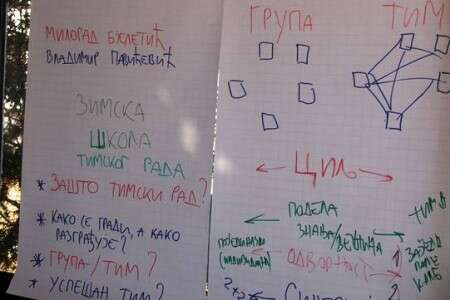 МИЛОРАД БЈЕЛЕТИЋ
ВЛАДИМИР ПАВИЋЕВИЋ
ЗИМСКА
ШКОЛА
ТИМСКОГ РАДА
* ЗАШТО ТИМСКИ РАД?
* КАКО СЕ ГРАДИ, А КАКО
РАЗГРАЂУЈЕ?
* ГРУПА/ТИМ?
* УСПЕШАН ТИМ?
ГРУПА ТИМ
ЦИЉ
ПОДЕЛА
ЗНАЊА/ВЕШТИНА
ПОЈЕДИНАЧНИ
ТИМ